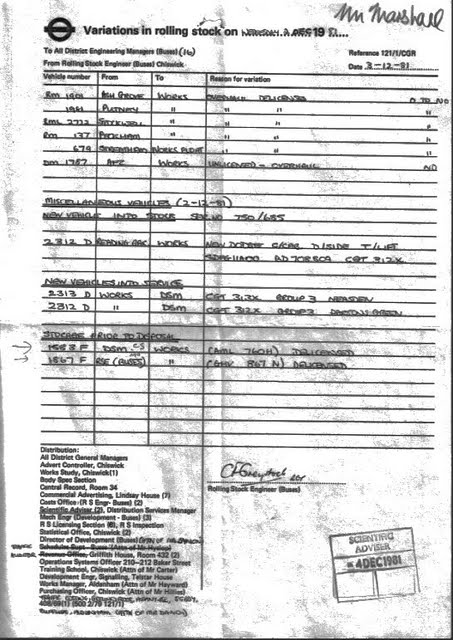 Mr Marshall
Variations in rolling stock on WEDNESDAY 2 DEC 19 81....
To All District Engineering Managers (Buses) (16)
Reference 121/1/CGR
From Rolling Stock Engineer (Buses) Chiswick
Date 3-12-81
Vehicle number From To Reason for variation
RM 1901 ASH GROVE WORKS OVERHAUL DELICENSED O TO NO
1961 PUTNEY " " " "
RML 2772 STOCKWELL " " " "
RM 137 PECKHAM " " " "
679 STREATHAM WORKS FLOAT " " " "
DM 1787 WORKS UNLICENSED - OVERHAUL NO
MISCELLANEOUS VEHICLES (2-12-81)
NEW VEHICLE INTO STOCK 750/685
2312 D READING WORKS NEW DODGE C/CAB D/SIDE T/LIFT
CGT 312X
NEW VEHICLES INTO SERVICE
2313 D WORKS DSM CGT 313X GROUP 3 NEASDEN
2312 D " DSM CGT 312X GROUP 3
STORAGE PRIOR TO DISPOSAL
1583 F DSM CS WORKS (AML 760H) DELICENSED
1567 F RSE (BUSES) " (AHV 867 N) DELICENSED
Distribution:
All District General Managers
Advert Controller, Chiswick
Works Study, Chiswick (1)
Body Spec Section
Central Record, Room 34
Commercial Advertising, Lindsay House (7)
Costs Office (R S Engr- Buses) (2)
Scientific Adviser (2), Distribution Services Manager
Mech Engr (Development - Buses) (3)
R S Licensing Section (6), R S Inspection
Statistical Office, Chiswick (2)
Director of Development (Buses)
Schedules Supt - Buses (Attn of Mr Hyslop)
Revenue Office, Griffith House, Room 432 (2)
Operations Systems Officer 210-212 Baker Street
Training School, Chiswick (Attn of Mr Carter)
Development Engr, Signalling, Telstar House
Works Manager, Aldenham (Attn of Mr Hayward)
Purchasing Officer, Chiswick (Attn of Mr Hillies)
408/69(1) (500 2/79 121/1)
Rolling Stock Engineer (Buses)
SCIENTIFIC
ADVISER
4 DEC 1981